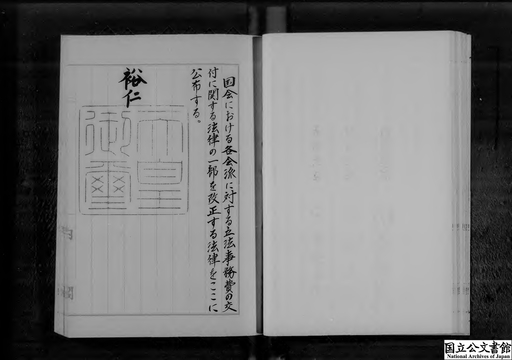 国会における各会派に対する立法事務費の交
付に関する法律の一部を改正する法律をここに
公布する。
裕仁
天皇
御璽
国立公文書館
National Archives of Japan